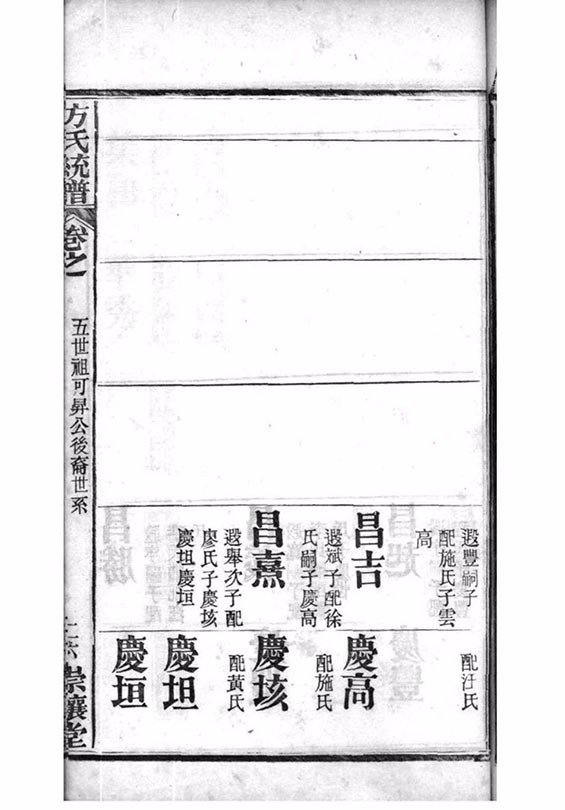 遐豐嗣子
配施氏子雲
高
昌吉
遐斌子配徐
氏嗣子慶高
昌熹
遐舉次子配
廖氏子慶垓
慶坦慶垣
配汪氏
慶高
配施氏
慶垓
配黃氏
慶坦
慶垣
方氏統譜
卷之
五世祖可昇公後裔世系
崇讓堂